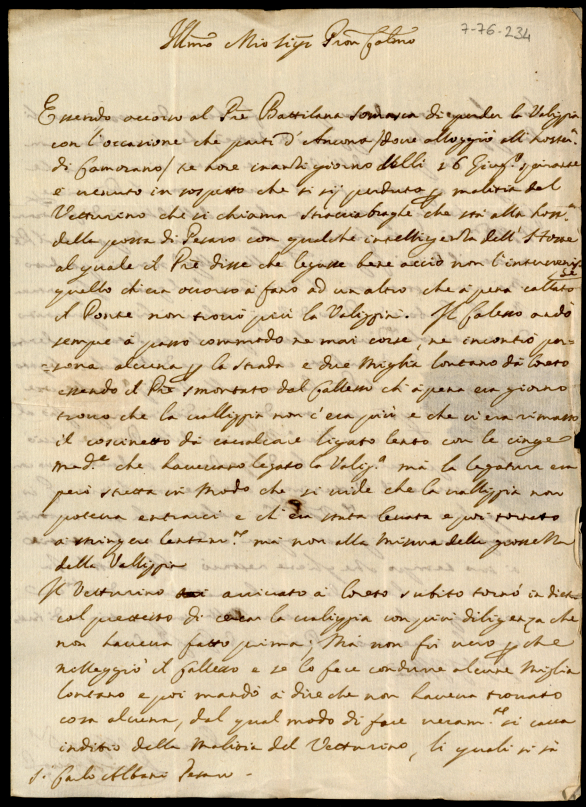 7-76-234
Illmo Mio Sigr Pron Colmo
Essendo occorso al Pre Battilana Somasca di perder la Valiggia
con l'occasione che partì d'Ancona / dove alloggiò all'hostria
di Camorano / tre hore inanti giorno delli 26 Giugo
è venuto in sospetto che si sij perduta p malitia del
Vetturino che si chiama Stracciabraghe che stà alla host.a
della posta di Pesaro con qualche intelligenza dell'Hoste
al quale il Pre disse che legasse bene acciò non l'intervenisse
quello ch'era occorso a fano ad un altro che a pena callato
il Ponte non trovò più la Valiggia. Il Calesso andò
sempre à passo commodo ne mai corse, ne incontrò per-
sona alcuna p la strada e due miglia lontano da loreto
essendo il Pre smontato dal Callesso ch'à pena era giorno
trovò che la valliggia non c'era più e che vi era rimasto
il coscinetto da cavalcare ligato lento con le cinge
med.e che havevano legato la Valig.a mà la legatura era
però stretta in modo che si vide che la valliggia non
poteva entrarci e ch'era stata levata e poi tornato
a stringere lentam.te mà non alla misura della grossezza
della Valliggia
Il Vetturino arrivato à loreto subito tornò in dietro
col pretesto di cercar la valiggia con più diligenza che
non haveva fatto prima; Mà non fù vero p che
noleggiò il Callesso e se lo fece condurre alcune miglia
lontano e poi mandò à dire che non haveva trovato
cosa alcuna, dal qual modo di fare veram.te si cava
inditio della malitia del Vetturino, li quali si sà
Sr Carlo Albani Pesaro